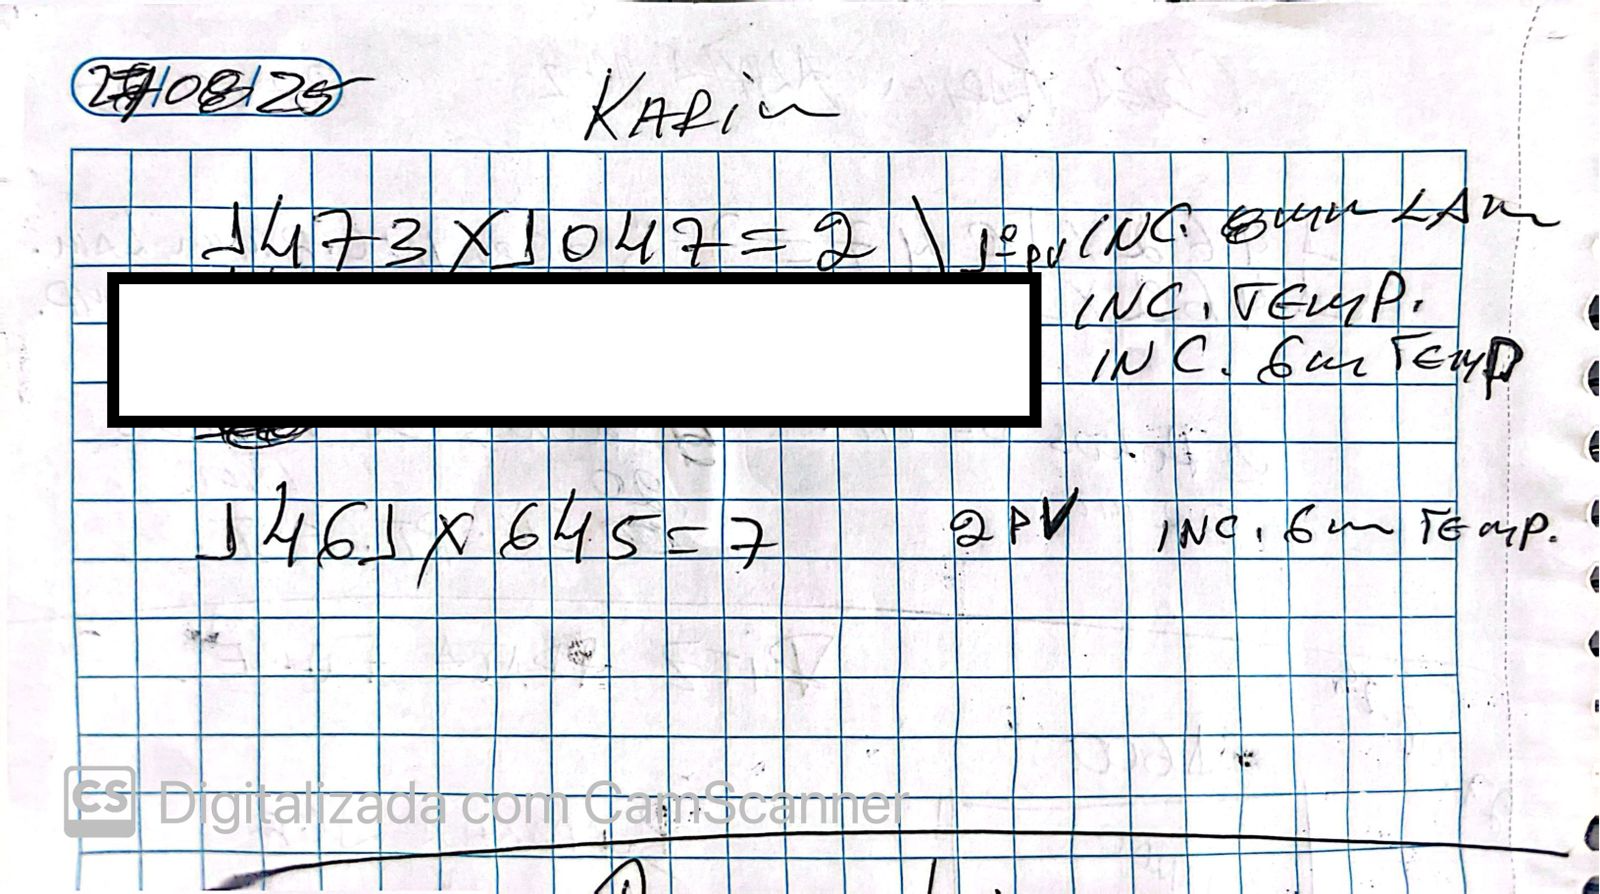 27/08/25
KARin
1473 X 1047 = 2 \ 1º PV INC. 8mm LAm
INC. TEmP.
INC. 6m TEmP
1461 X 645 = 7 2 PV INC. 6m TEmP.
CS Digitalizada com CamScanner